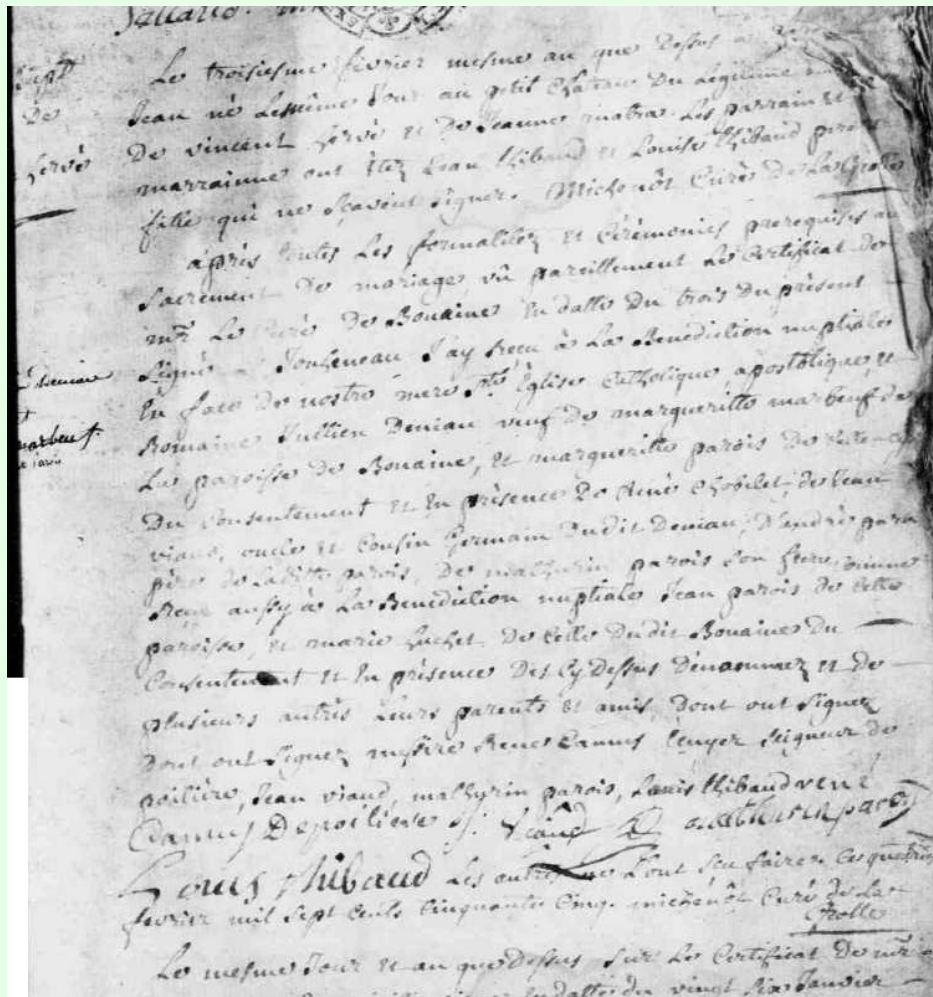 Le troisiesme fevrier mesme an que Dessus a
Jean né Lemême Jour au petit Chateau Du Legitime
De vincent hervé et De Jeanne Les parrain et
marrainne ont étez Jean thibaud et Louise thibaud
fille qui ne sçavent signer. Michenot Curé De La Grolle
après toutes Les formalitez et Cérémonies prerequises au
sacrement De mariage, vû pareillement Le Certificat de
mr Le Curé de Bouaine En datte Du trois Du présent
signé J'ay Receu à La Benediction nuptiale
En face De nostre mere Ste Église Catholique apostolique, et
Romaine Jullien Deniau veuf de margueritte marbeuf de
La paroisse de Bouaine, et margueritte parois De Cette
Du Consentement et En présence De René Chobelet, de Jean
viaud, oncle et Cousin Germain Dudit Deniau, D'andré
père de Laditte parois, De mathurin parois son frere, comme
Reçu aussy à La Benediction nuptiale Jean parois de Cette
paroisse, et marie huchet De Celle Dudit Bouaine Du
Consentement et En présence Des Cy Dessus Dénommez et de
plusieurs autres Leurs parents et amis, Dont ont signez
Dont ont signez messire Rene Camus Ecuyer seigneur de
poiliere, Jean viaud, mathurin parois, Louis thibaud
Camus Depoiliere J: viaud mathurin parois
Louis thibaud Les autres ne L'ont sçu faire. Ce quatre
fevrier mil sept cents Cinquante Cinq. michenot Curé De La
Grolle
Le mesme Jour et an que Dessus sur Le Certificat De mr
En datte du vingt six Janvier
hervé
Deniau
marbeuf.